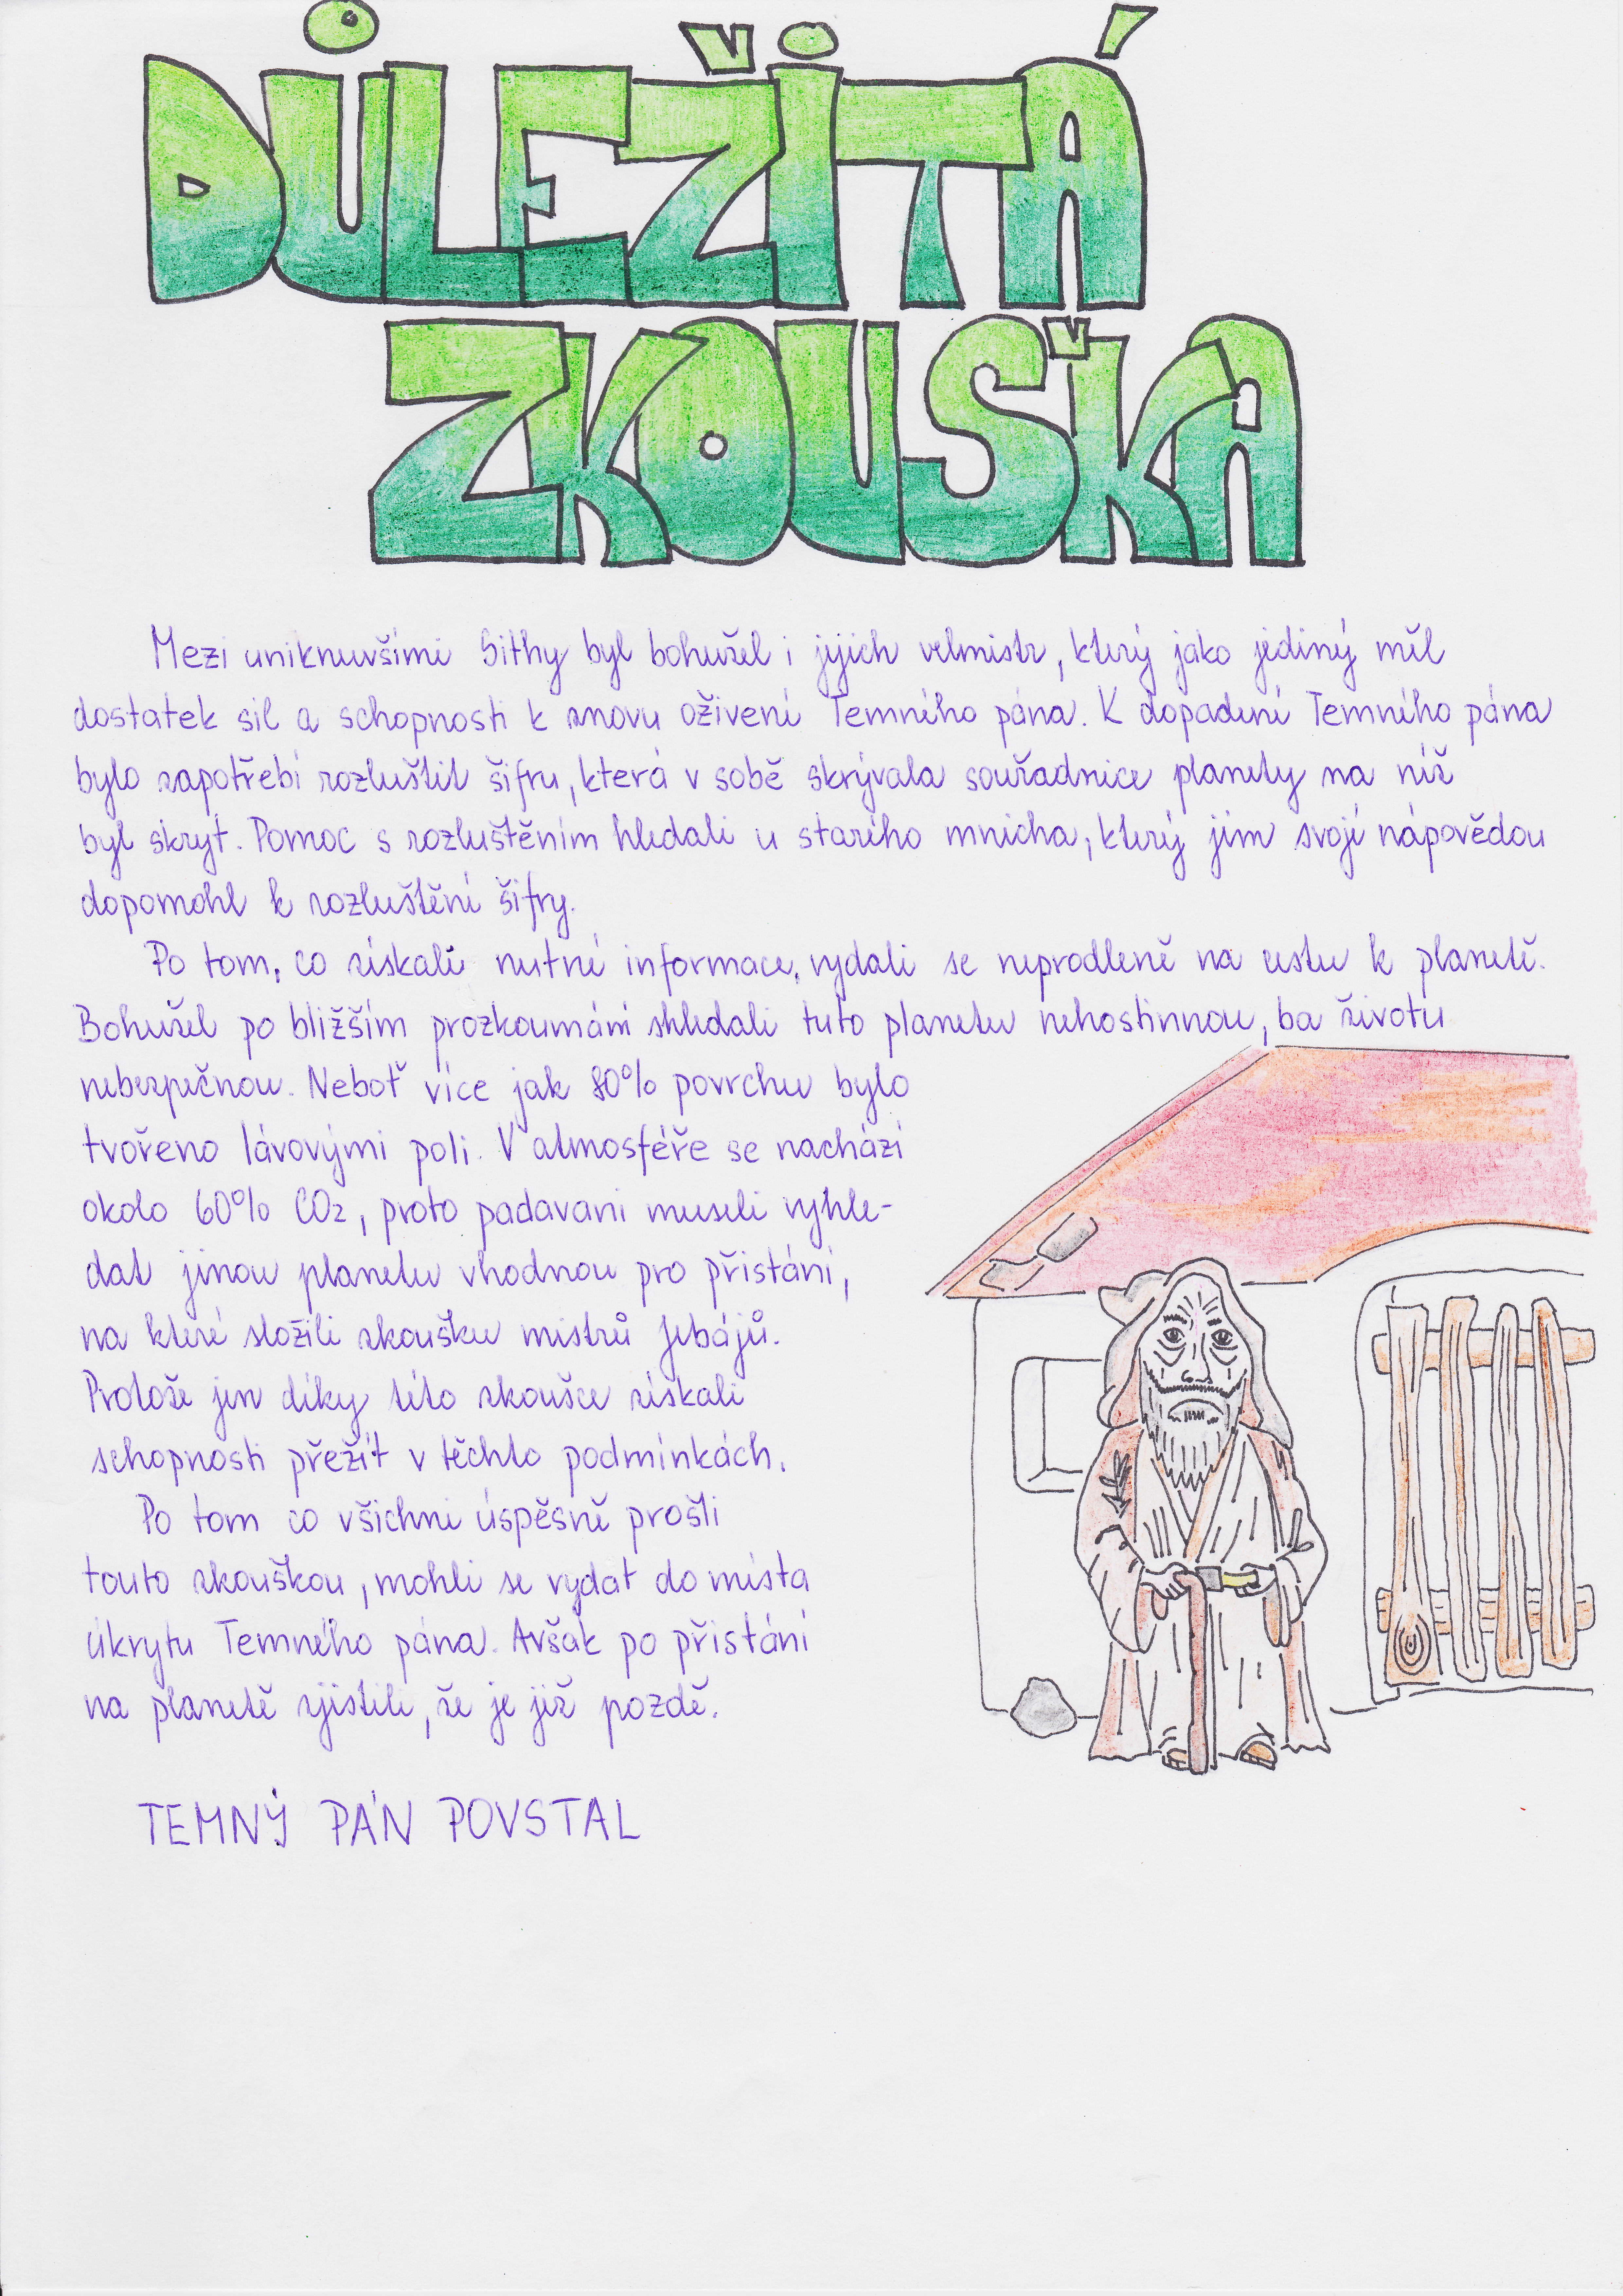 DŮLEŽITÁ
ZKOUŠKA
Mezi uniknuvšími Sithy byl bohužel i jejich velmistr, který jako jediný měl
dostatek sil a schopnosti k znovu oživení Temného pána. K dopadení Temného pána
bylo zapotřebí rozluštit šifru, která v sobě skrývala souřadnice planety na níž
byl skryt. Pomoc s rozluštěním hledali u starého mnicha, který jim svojí nápovědou
dopomohl k rozluštění šifry.
Po tom, co získali nutné informace, vydali se neprodleně na cestu k planetě.
Bohužel po bližším prozkoumání shledali tuto planetu nehostinnou, ba životu
nebezpečnou. Neboť více jak 80% povrchu bylo
tvořeno lávovými poli. V atmosféře se nachází
okolo 60% CO2, proto padavani museli vyhle-
dat jinou planetu vhodnou pro přistání,
na které složili zkoušku mistrů Jebájů.
Protože jen díky této zkoušce získali
schopnosti přežít v těchto podmínkách.
Po tom co všichni úspěsně prošli
touto zkouškou, mohli se vydat do místa
úkrytu Temného pána. Avšak po přistání
na planetě zjistili, že je již pozdě.
TEMNÝ PÁN POVSTAL